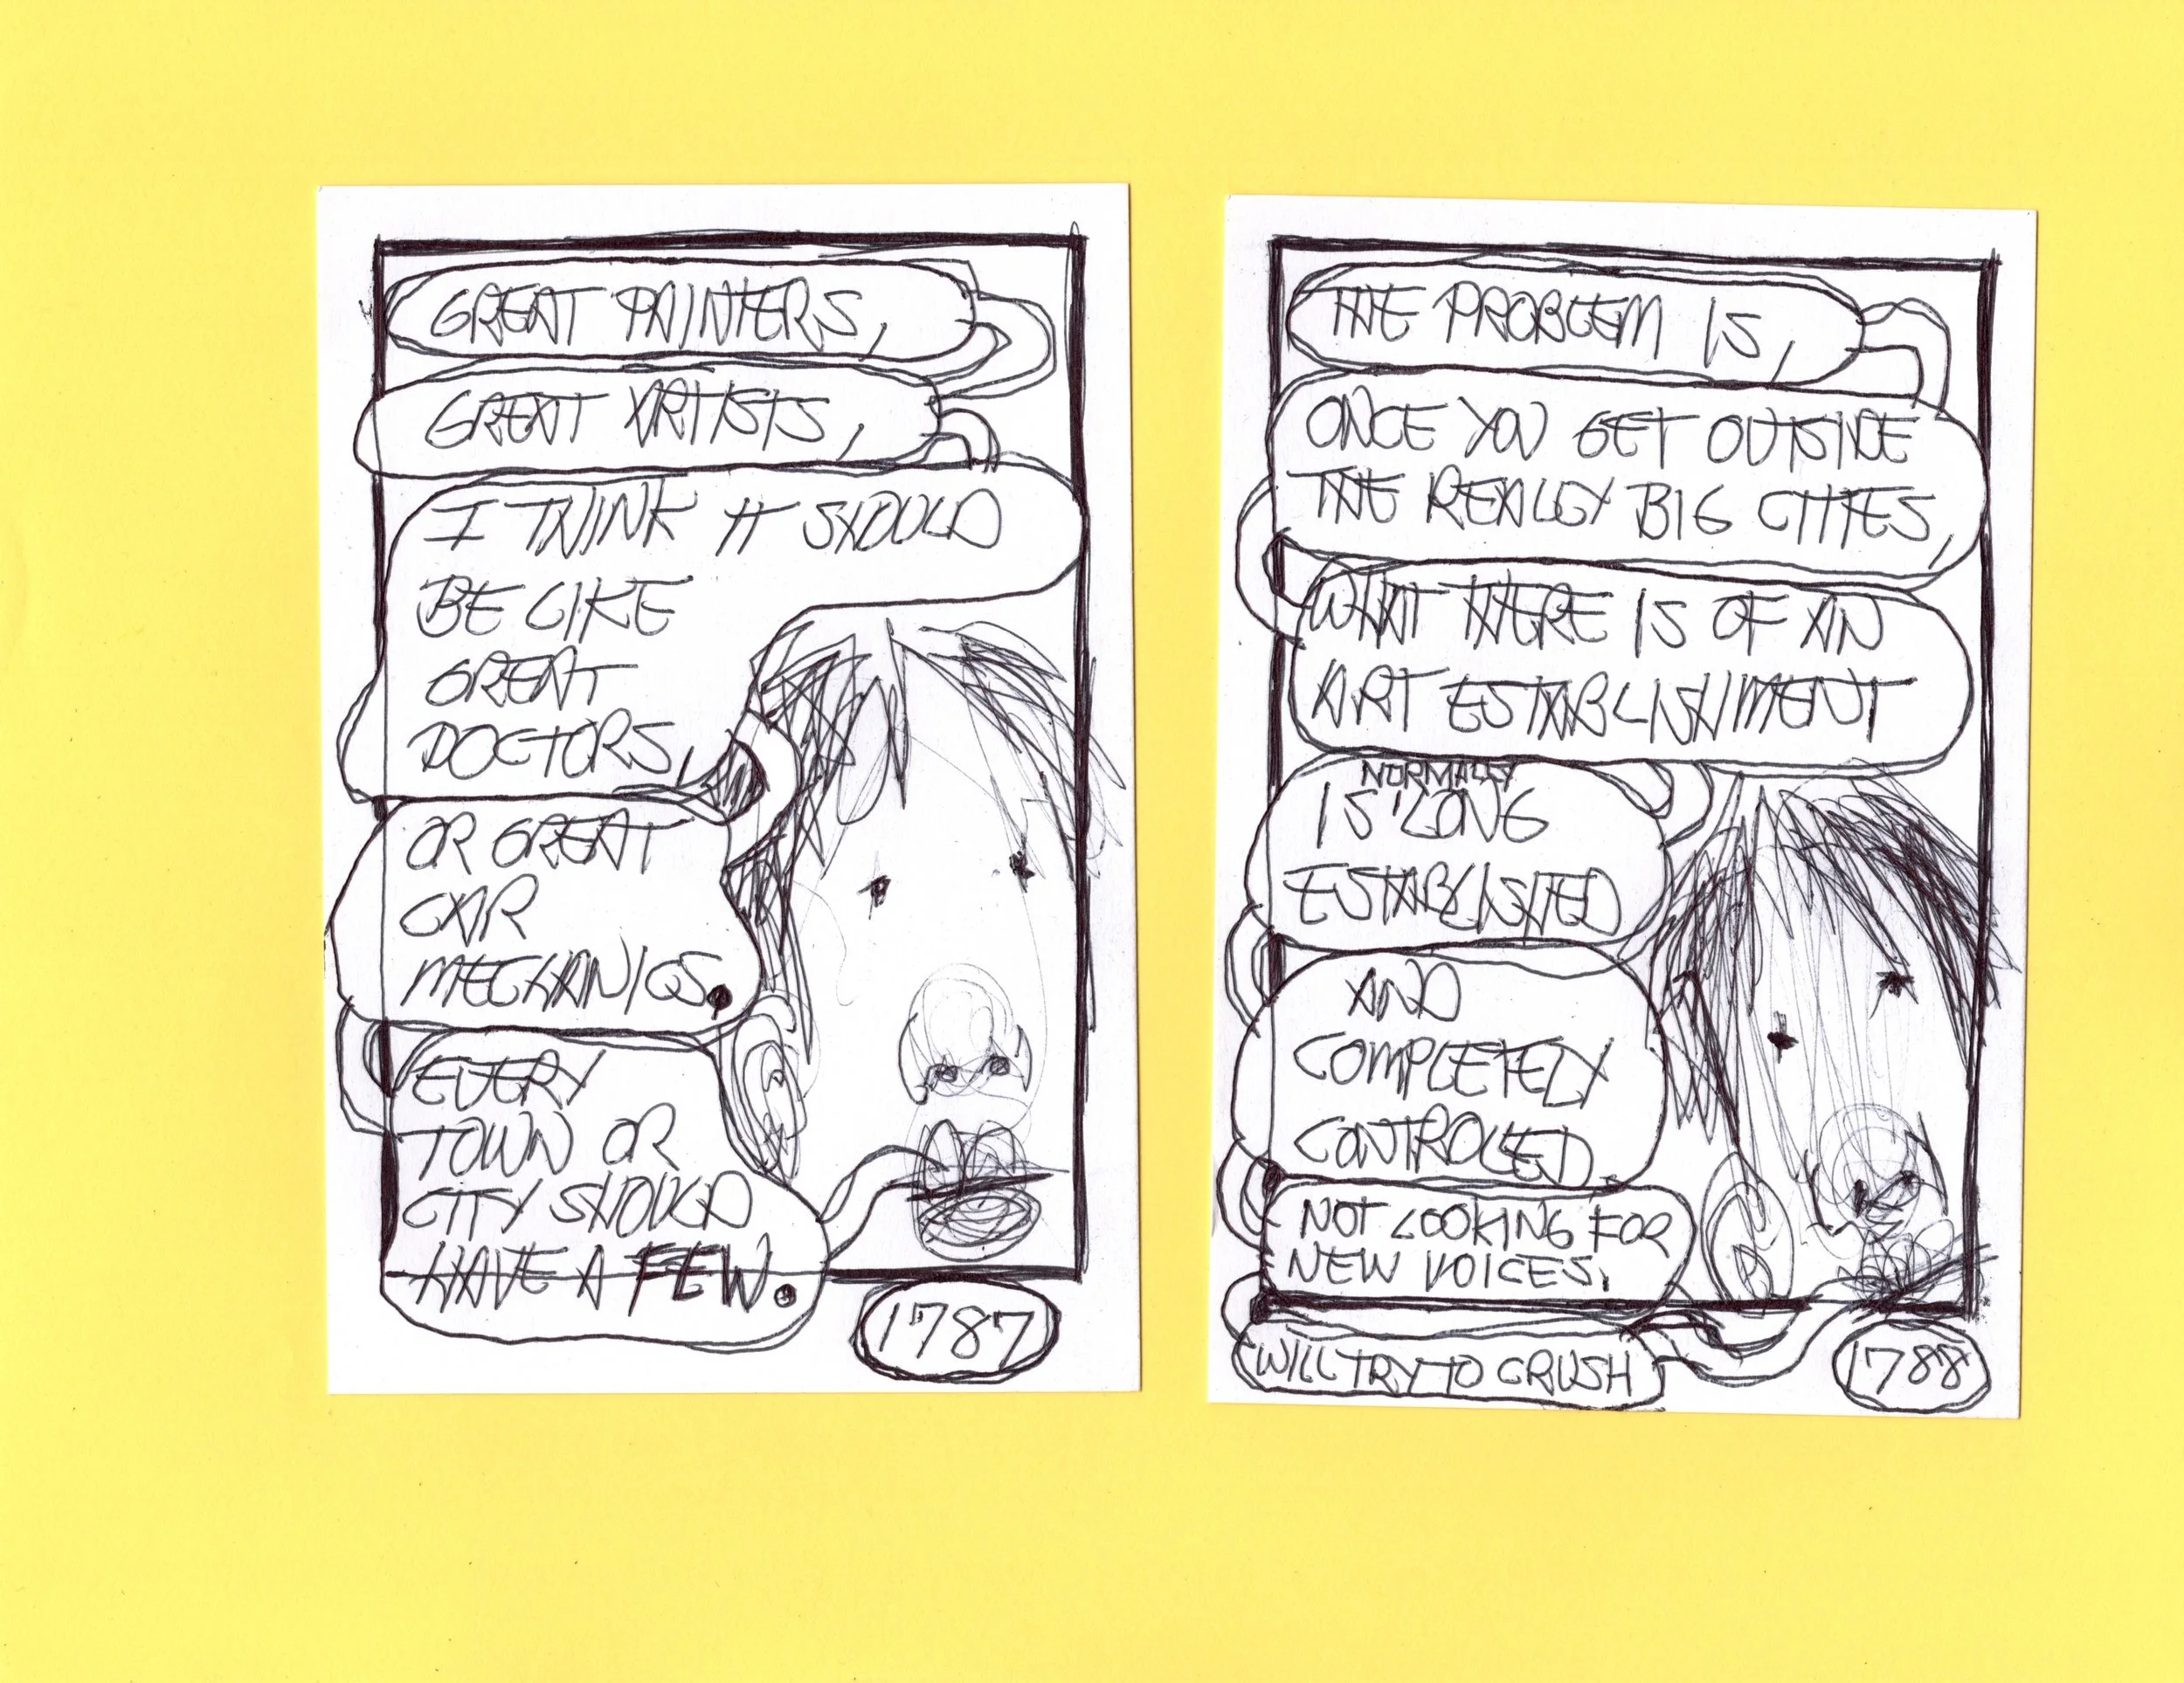 GREAT PAINTERS,
GREAT ARTISTS,
I THINK IT SHOULD
BE LIKE
GREAT
DOCTORS,
OR GREAT
CAR
MECHANICS.
EVERY
TOWN OR
CITY SHOULD
HAVE A FEW.
1787
THE PROBLEM IS,
ONCE YOU GET OUTSIDE
THE REALLY BIG CITIES,
WHAT THERE IS OF AN
ART ESTABLISHMENT
NORMALLY
IS LONG
ESTABLISHED
AND
COMPLETELY
CONTROLED.
NOT LOOKING FOR
NEW VOICES.
WILL TRY TO CRUSH
1788